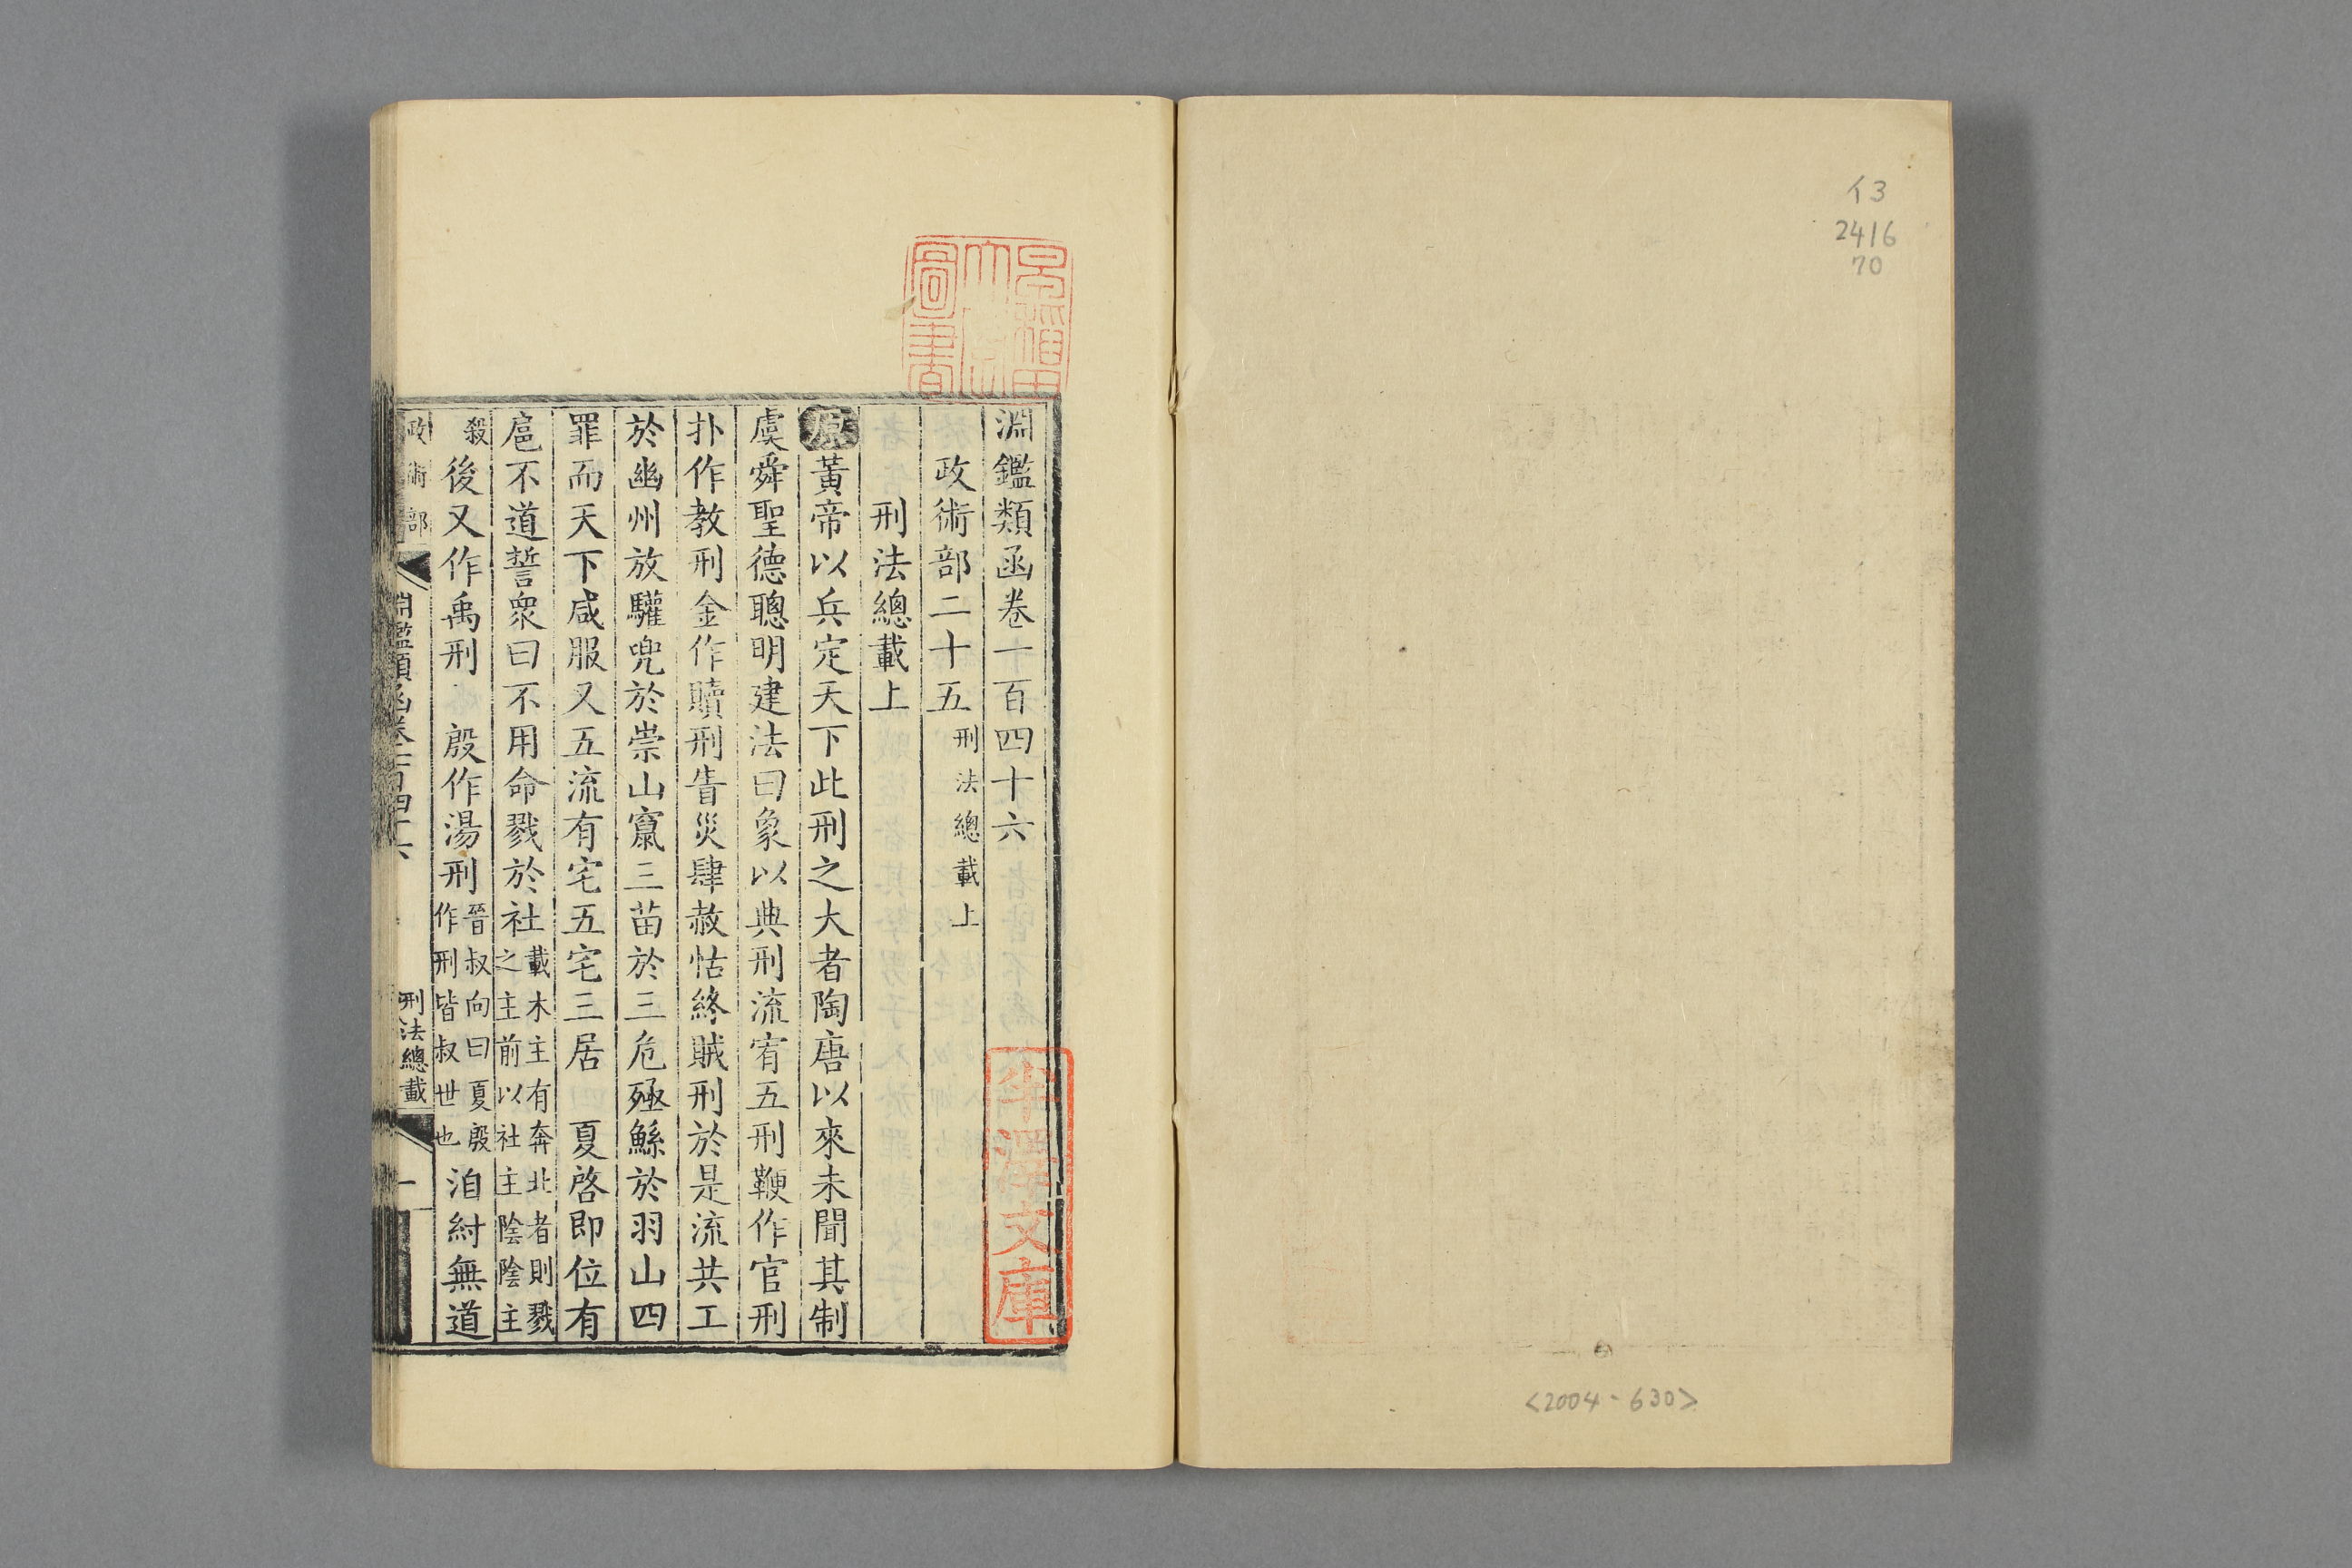 イ3
2416
70
<2004-630>
淵鑑類函卷一百四十六
政術部二十五 刑法總載上
刑法總載上
原黃帝以兵定天下此刑之大者陶唐以來未聞其制
虞舜聖德聰明建法曰象以典刑流宥五刑鞭作官刑
扑作教刑金作贖刑眚災肆赦怙終賊刑於是流共工
於幽州放驩兜於崇山竄三苗於三危殛鯀於羽山四
罪而天下咸服又五流有宅五宅三居 夏啓即位有
扈不道誓衆曰不用命戮於社載木主有奔北者則戮之主前以社主陰陰主
殺後又作禹刑 殷作湯刑晉叔向曰夏殷作刑皆叔世也洎紂無道
政術部 淵鑑類函卷一百四十六 刑法總載 一
早稻田大學圖書
寧澤文庫